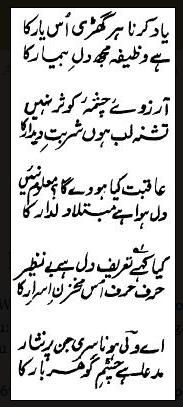 یاد کرنا ہر گھڑی اُس یار کا
ہے وظیفہ مجھ دلِ بیمار کا
آرزوے چشمۂ کوثر نہیں
تشنہ لب ہوں شربتِ دیدار کا
عاقبت کیا ہووے گا؟ معلوم نئیں
دل ہوا ہے مبتلا دلدار کا
کیا کہے تعریف دل ہے بے نظیر
حرف حرف اس مخزنِ اسرار کا
اے ولی ہونا سری جن پر نثار
مدعا ہے چشمِ گوہر بار کا